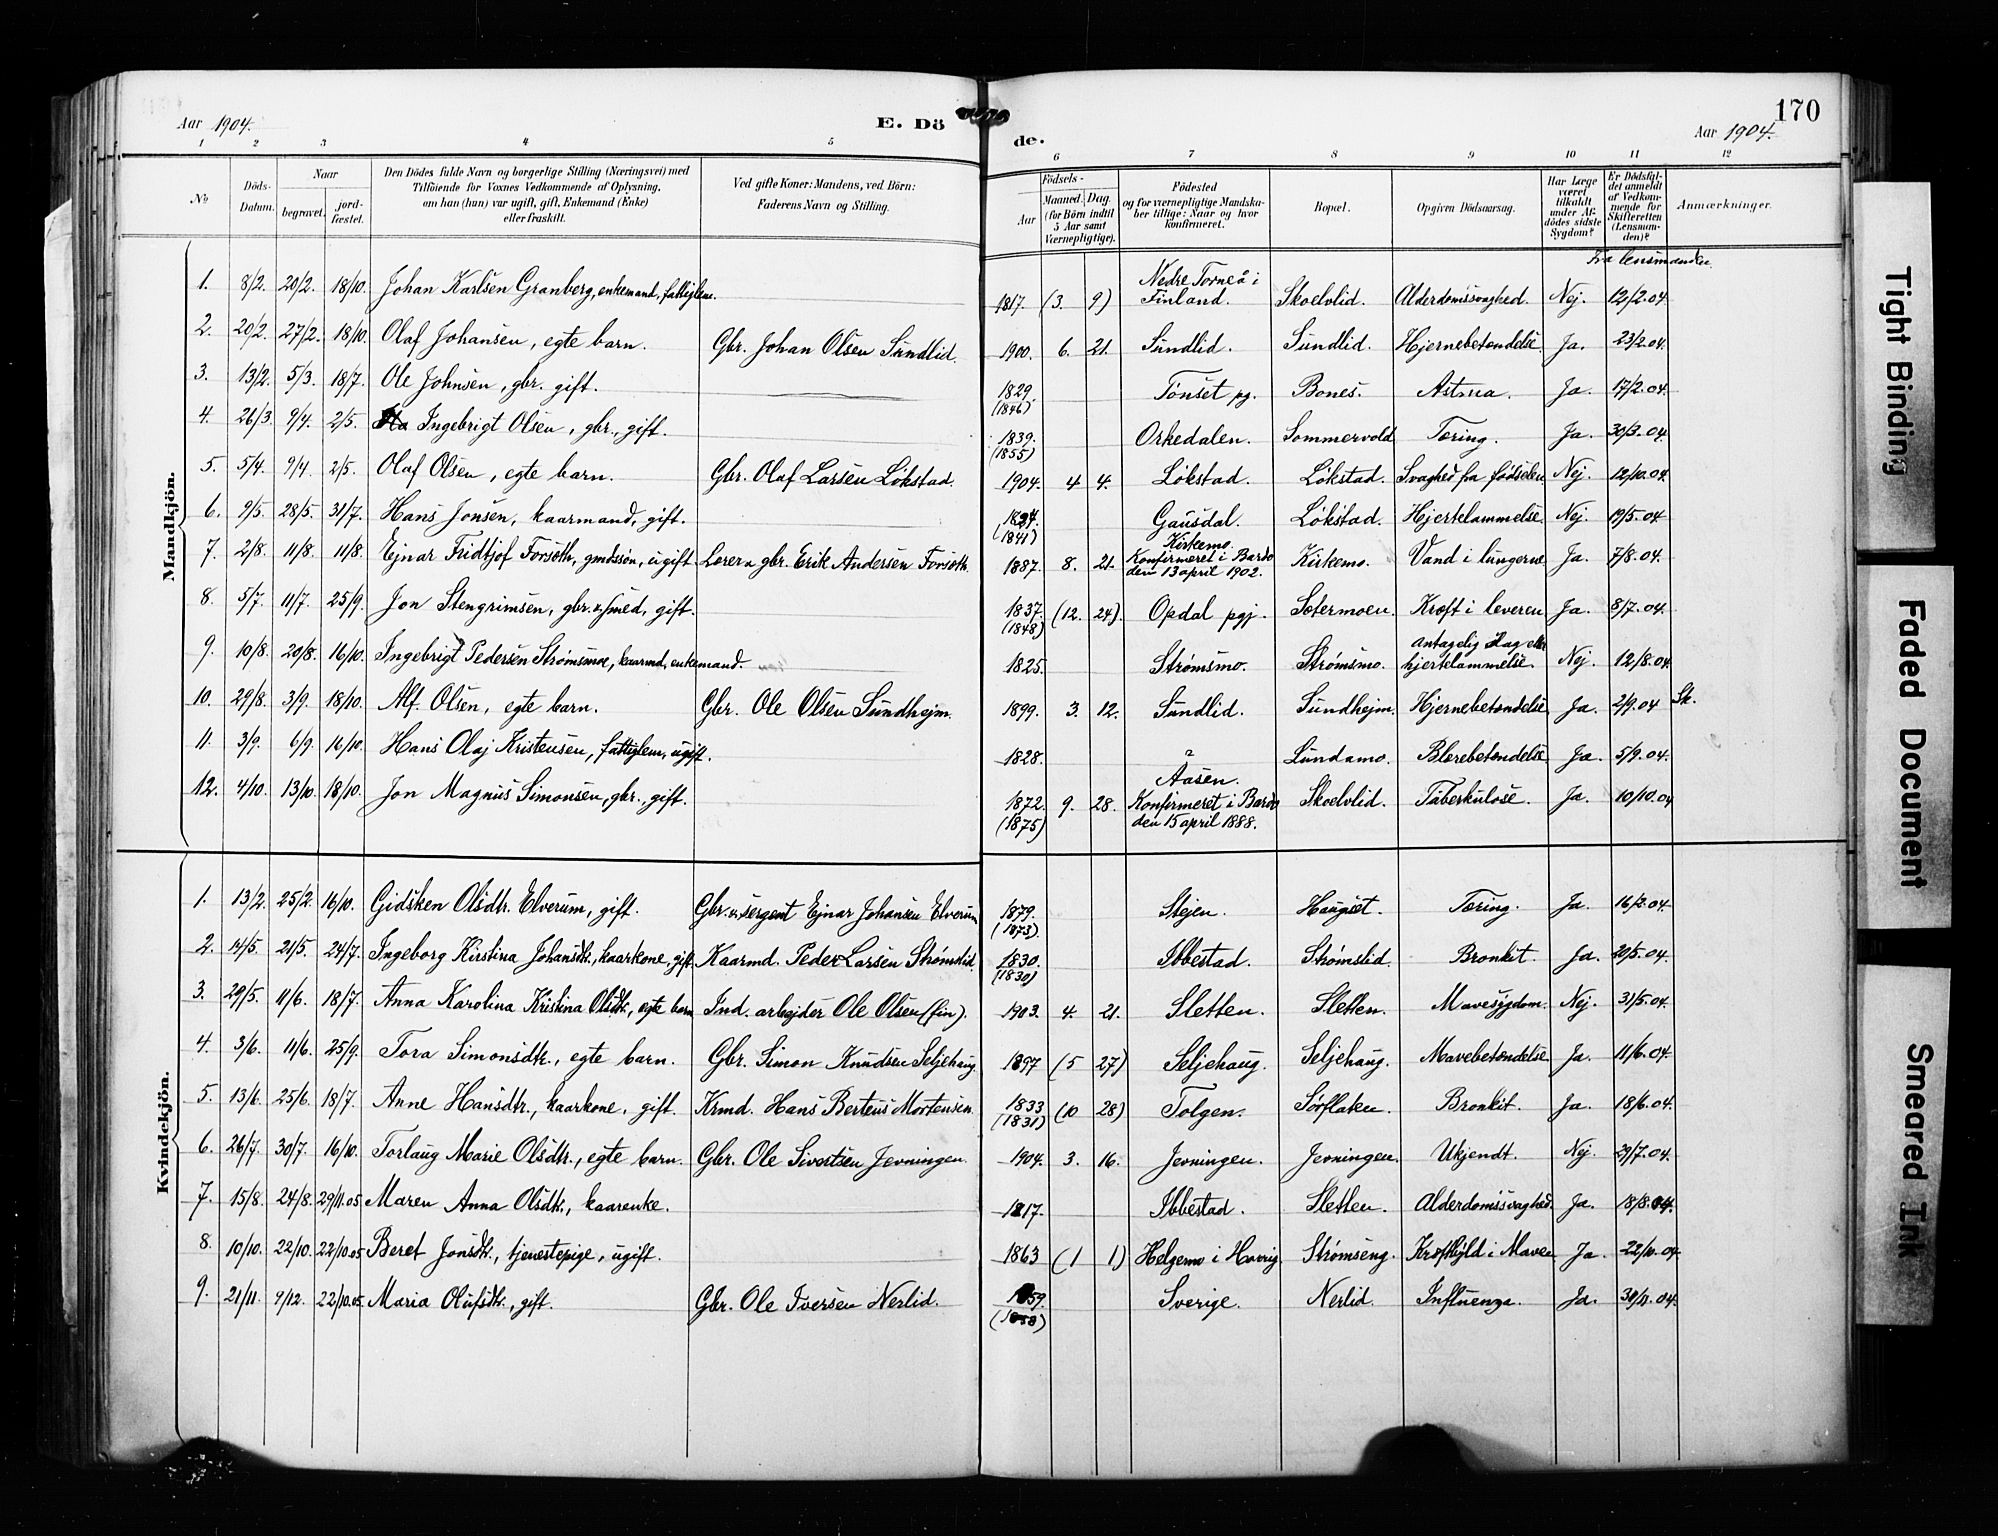 Aar 1904.
E. Dö
de.
170
Aar 1904.
1 2 3 4 5 6 7 8 9 10 11 12
№
Döds-
Datum.
Naar
begravet.
jord-
fæstet.
Den Dödes fulde Navn og borgerlige Stilling (Næringsvei) med
Tilföiende for Voxnes Vedkommende af Oplysning,
om han (hun) var ugift, gift, Enkemand (Enke)
eller fraskilt.
Ved gifte Koner: Mandens, ved Börn:
Faderens Navn og Stilling.
Födsels-
Aar
Maaned. Dag.
(for Börn indtil
5 Aar samt
Værnepligtige).
Födested
og for værnepligtige Mandska-
ber tillige: Naar og hvor
konfirmeret.
Bopæl.
Opgiven Dödsaarsag.
Har Læge
været
tilkaldt
under Af-
dödes sidste
Sygdom?
Er Dödsfal-
det anmeldt
af Vedkom-
mende for
Skifteretten
(Lensman-
den)?
Anmærkninger.
Fra lensmanden
Mandkjön.
1. 8/2. 20/2. 18/10. Johan Karlsen Granberg, enkemand, fattiglem. 1817. (3. 9) Nedre Torneå i Finland. Skoelvlid. Alderdomssvaghed. Nej. 12/2.04.
2. 20/2. 27/2. 18/10. Olaf Johansen, egte barn. Gbr. Johan Olsen Sundlid. 1900. 6. 21. Sundlid. Sundlid. Hjernebetændelse Ja. 23/2.04.
3. 13/2. 5/3. 18/7. Ole Johnsen, gbr. gift. 1829. (1846) Tönset pg. Bones. Astma. Ja. 17/2.04.
4. 26/3. 9/4. 2/5. Ingebrigt Olsen, gbr., gift. 1839. (1855) Orkedalen. Sommervold Tæring. Ja. 30/3.04.
5. 5/4. 9/4. 2/5. Olaf Olsen, egte barn. Gbr. Olaf Larsen Løkstad. 1904. 4 4. Løkstad. Løkstad. Svaghed fra fødselen Nej. 12/10.04.
6. 9/5. 28/5. 31/7. Hans Jonsen, kaarmand, gift. (1841) Gausdal. Løkstad. Hjertelammelse. Nej. 19/5.04.
7. 2/8. 11/8. 11/8. Ejnar Fridtjof Forsøth, gmdssön, ugift. Lærer u. gbr. Erik Andersen Forsøth. 1887. 8. 21. Kirkemo. Konfirmeret i Bardo den 13 april 1902. Kirkemo. Vand i lungerne Ja. 7/8.04.
8. 5/7. 11/7. 25/9. Jon Stengrimsen, gbr. u. smed, gift. 1837. (1848) (12. 24). Opdal pgj. Sætermoen. Kræft i leveren Ja. 8/7.04.
9. 10/8. 20/8. 16/10. Ingebrigt Pedersen Strømsmo, kaarmd, enkemand. 1825. Strømsmo. Strømsmo. antagelig slag eller hjertelammelse. Nej. 12/8.04.
10. 29/8. 3/9. 18/10. Alf Olsen, egte barn. Gbr. Ole Olsen Sundhejm. 1899. 3. 12. Sundlid. Sundhejm. Hjernebetændelse Ja. 2/9.04 Sk.
11. 3/9. 6/9. 16/10. Hans Olaj Kristensen, fattiglem, ugift. 1828. ? Lundamo. Blærebetændelse Ja. 5/9.04.
12. 4/10. 13/10. 18/10. Jon Magnus Simonsen, gbr., gift. 1872. (1875) 9. 28. Aasen. Konfirmeret i Bardo den 15 april 1888. Skoelvlid. Tuberkulose. Ja. 10/10.04
Kvindekjön.
1. 13/2. 25/2. 16/10. Gidsken Olsdtr. Elverum, gift. Gbr. u. sergent Ejnar Johansen Elverum 1879. (1873). Stejen. Haugset. Tæring. Ja. 16/2.04.
2. 14/5. 21/5. 24/7. Ingeborg Kirstina Johansdtr., kaarkone, gift. Kaarmd. Peder Larsen Strømslid. 1830. (1830) Ibbestad. Strømslid. Bronkit. Ja. 20/5.04.
3. 29/5. 11/6. 18/7. Anna Karolina Kristina Olsdtr., egte barn Ind. arbejder Ole Olsen (fin). 1903. 4. 21. Sletten. Sletten. Mavesygdom. Nej. 31/5.04.
4. 3/6. 11/6. 25/9. Tora Simonsdtr., egte barn. Gbr. Simon Knudsen Seljehaug. 1897 (5 27) Seljehaug. Seljehaug. Mavebetændelse Ja. 11/6.04.
5. 13/6. 25/6. 18/7. Anne Hansdtr., kaarkone, gift. Krmd. Hans Berteus Mortensen. 1833 (1831) (10 28) Tolgen. Sørflaten. Bronkit. Ja. 18/6.04.
6. 26/7. 30/7. 16/10. Torlaug Marie Olsdtr., egte barn. Gbr. Ole Sivertsen Jevningen. 1904. 3. 16. Jevningen. Jevningen. Ukjendt. Nej. 29/7.04.
7. 15/8. 24/8. 29/11.05 Maren Anna Olsdtr., kaarenke. 1817. Ibbestad. Sletten. Alderdomssvaghed. Ja. 18/8.04.
8. 10/10. 22/10. 22/10.05 Beret Jonsdtr., tjenestepige, ugift. 1863 (1 1) Helgemo i Strømseng. Kræftbyld i Maven Ja. 22/10.04
9. 21/11. 9/12. 22/10.05. Maria Olufsdtr., gift. Gbr. Ole Iversen Nerlid. 1859. (1858) Sverige. Nerlid. Influenza. Ja. 30/11.04.
Tight Binding
Faded Document
Smeared Ink